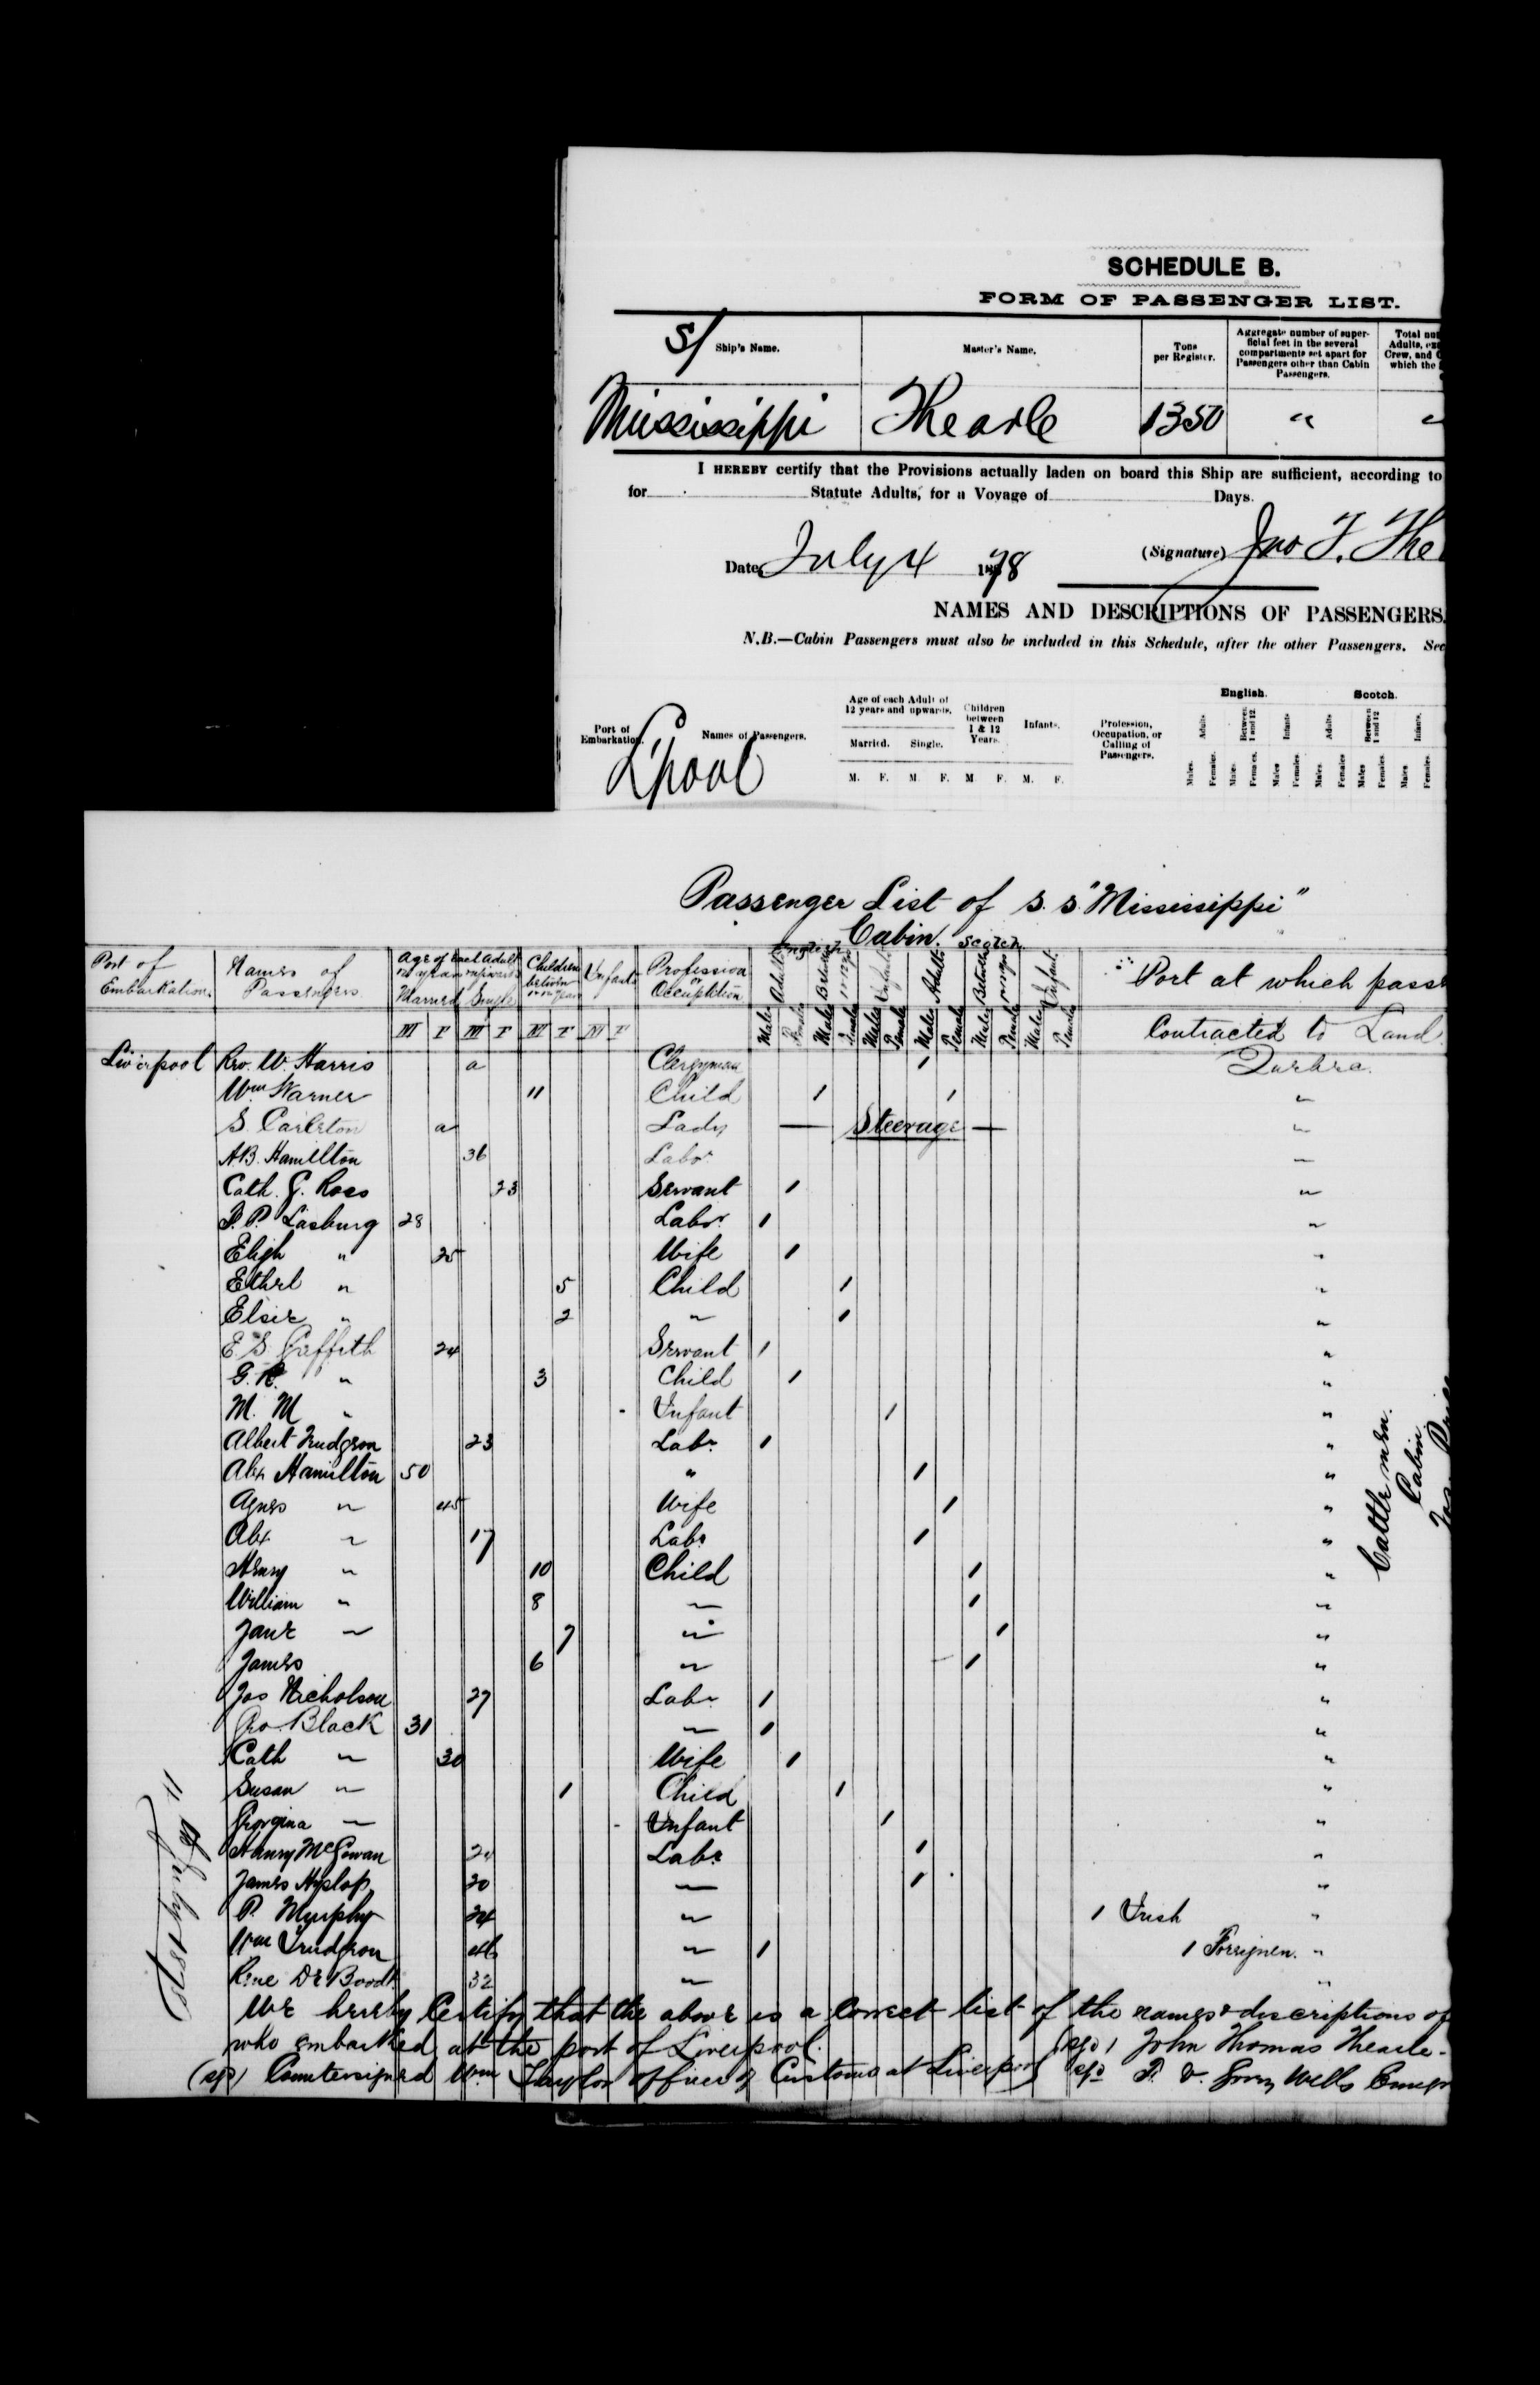 SCHEDULE B.
FORM OF PASSENGER LIST.
S/ Ship's Name. Master's Name. Tons per Register. Aggregate number of superficial feet in the several compartments set apart for Passengers other than Cabin Passengers. Total Adults, Crew, and which the
Mississippi Thearle 1350 " "
I HEREBY certify that the Provisions actually laden on board this Ship are sufficient, according to
for Statute Adults, for a Voyage of Days.
Date July 4 1878 (Signature) Jno T. The
NAMES AND DESCRIPTIONS OF PASSENGERS.
N.B.—Cabin Passengers must also be included in this Schedule, after the other Passengers. Sec
Port of Embarkation. Names of Passengers. Age of each Adult of 12 years and upwards. Children between 1 & 12 Years. Infants. Profession, Occupation, or Calling of Passengers. English. Scotch.
Married. Single. Adults. Between 1 and 12. Infants Adults. Between 1 and 12 Infants.
M. F. M. F. M F. M. F. Males. Females. Males. Females. Males Females. Males. Females Males Females. Males Females.
L'pool
Passenger List of S.S. "Mississippi"
Cabin.
English Scotch
Port of Embarkation. Names of Passengers Age of each Adult Married Single Children between Infants Profession or Occupation Adults Infants Adults Between Infant Port at which pass
M F M F M F M F Males Females Males Females Males Females Males Females Males Females Males Females Contracted to Land
Liverpool Rev. W. Harris a Clergyman 1
Wm Warner 11 Child 1 1 "
S. Carleton a Lady — Steerage — "
A.B. Hamillton 36 Labr. "
Cath. G. Ross 23 Servant 1 "
P. Lasburg 28 Labr. 1 "
" 25 Wife 1 "
Ethel " 5 Child 1 "
Elsie " 2 " 1 "
E S Griffith 24 Servant 1 "
" 3 Child 1 "
M. M " - Infant 1 "
Albert Trudgson 23 Labr. 1 "
Alex Hamilton 50 " 1 "
Agnes " 45 Wife 1 "
Alex. " 17 Labr 1 "
Henry " 10 Child 1 "
William " 8 " 1 "
Jane " 7 " 1 "
James 6 " 1 "
Jas Nicholson 27 Labr 1 "
Geo. Black 31 " 1 "
Cath " 30 Wife 1 "
Susan " 1 Child 1 "
Georgina " - Infant 1 "
Henry McGowan Labr. 1 "
James Hyslop 20 " 1 "
P. Murphy 24 " 1 Irish "
Wm Trudgson " 1 1 Foreigner. "
De Boodt 32 " "
Cattle men.
Cabin
11 July 1878
We hereby Certify that the above is a correct list of the names & descriptions of
who embarked at the port of Liverpool. (sgd) John Thomas Thearle.
(sgd) Countersigned Wm Taylor officer of Customs at Liverpool sgd Wells